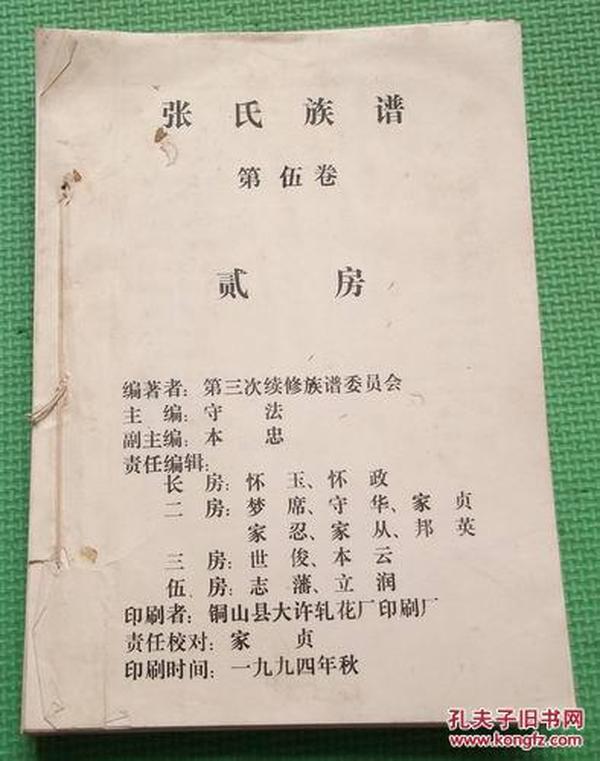 张氏族谱
第伍卷
贰房
编著者：第三次续修族谱委员会
主编：守法
副主编：本忠
责任编辑：
长房：怀玉、怀政
二房：梦席、守华、家贞
家忍、家从、邦英
三房：世俊、本云
伍房：志藩、立润
印刷者：铜山县大许轧花厂印刷厂
责任校对：家贞
印刷时间：一九九四年秋
孔夫子旧书网
www.kongfz.com